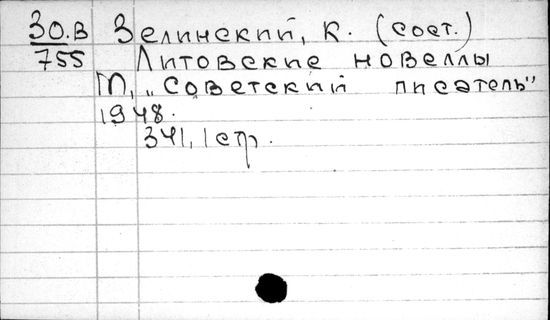 30.В Зелинский, К. (сост.)
755 Литовские новеллы
М, „Советский писатель"
1948.
341, 1 стр.